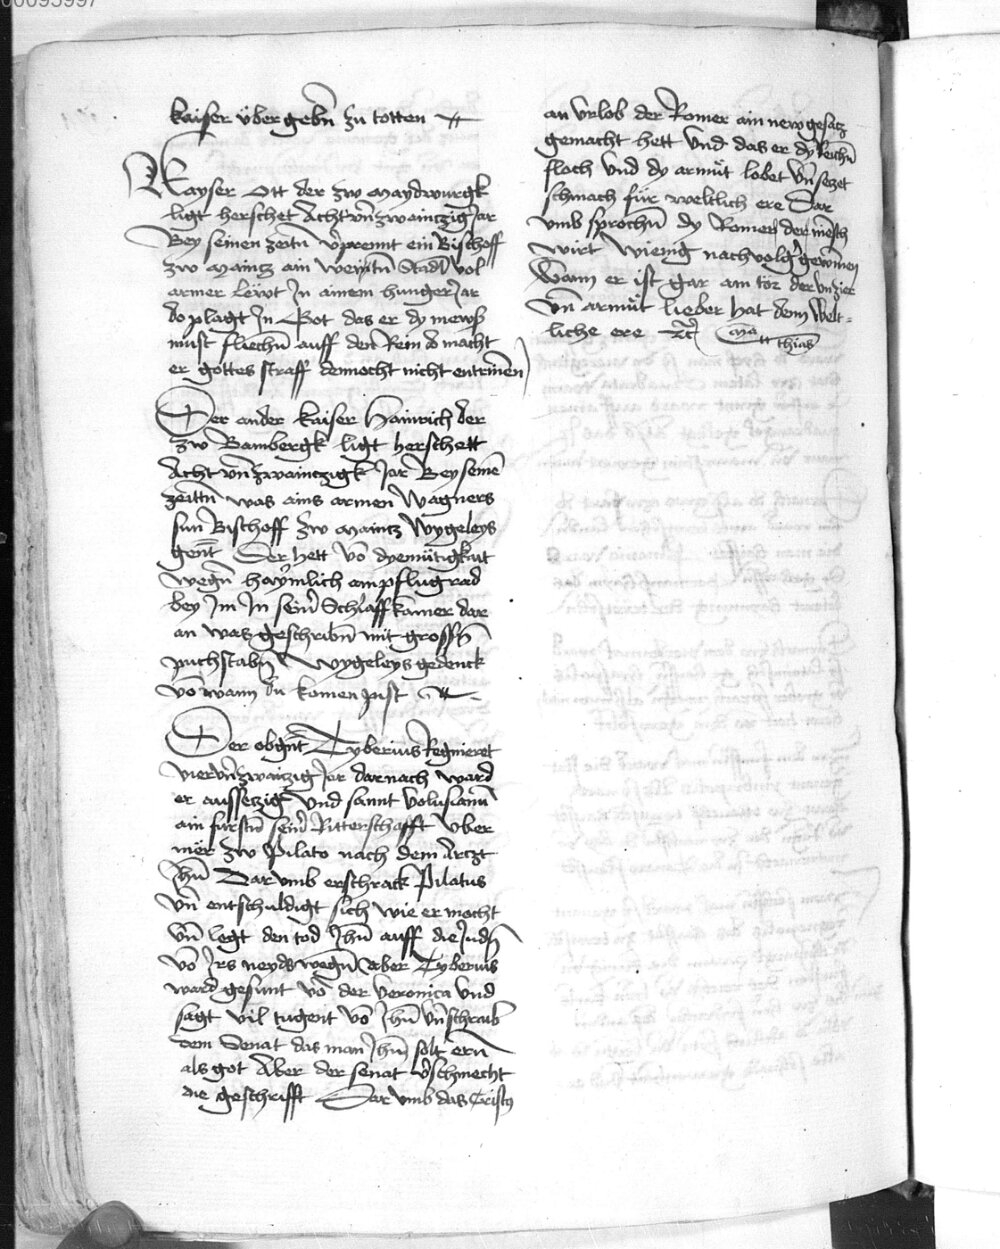 00095997
kaiser über gebn̄ zu totten
Kayser Ott der zw Maydwurgk
ligt herschet Acht vn̄ zwainczig Jar
Bey seinen zeitn̄ v̓prennt ein Bischoff
zw Maincz ain weytn̄ Stadl vol
armer lewt Jn ainem hunger Jar
do plagt Jn Got das er dy mewß
must fliechn̄ auff den Rein do macht
er gottes straff dennocht nicht entrinnen
Der ander kaiser Hainrich der
zw Bambergk ligt herschett
Acht vn̄ zwainczigk Jar Bey seinē
zeittn̄ was ains armen Wagners
sun Bischoff zw Maincz Wygeleys
gent̄ Der hett vō dyemütigkait
wegn̄ haymlich ain pflugrad
bey Jm Jn sein̄ Schlaffkamer dar
an was geschribn̄ mit grossn̄
puchstabn̄ Wygeleys gedenck
vō wann du komen pist
Der obgnt̄ Tyberius Regnieret
vier vn̄ zwainzig Jar darnach ward
er aussetzig vnd sannt Volusianū
ain furstn̄ sein̄ Ritterschafft vber
mer zw Pilato nach dem Arczt
Jhū Dar vmb erschrack Pilatus
vn̄ entschuldigt sich wie er mocht
vn̄ legt den tod Jhū auff die Judn̄
vō Jrs neyds wegn̄ Aber Tyberius
ward gesunt vō der Veronica vnd
sagt vil tugent vō Jhū vn̄ schraib
dem Senat das man Jhū solt ern̄
als got Aber der senat v̓schmecht
die geschrifft Dar vmb das Cristꝯ
an vrlob der Romer ain new gesacz
gemacht hett Vnd das er dy Reichn̄
floch Vnd dy armüt lobet vn̄ seczet
schmach für weltlich ere Dar
vmb sprochn̄ dy Romer der mēsch
wirt wienig nachvolg̓ gewinnen
Wann er ist gar ain tor der vnzier
vn̄ armüt lieber hat dem Welt-
liche ere ꝛc̄ Ma
thias